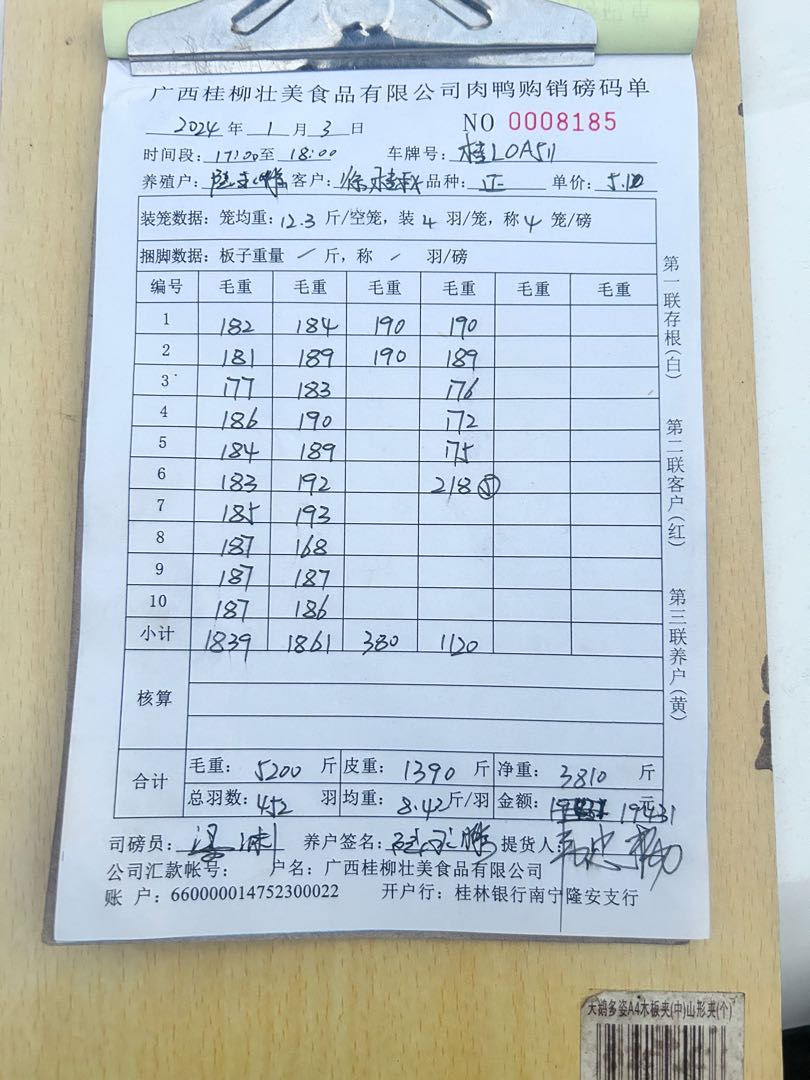 广西桂柳壮美食品有限公司肉鸭购销磅码单
2024 年 1 月 3 日 NO 0008185
时间段：17:00至 18:00 车牌号：桂L0A511
养殖户： 客户： 品种：正 单价：5.10
装笼数据：笼均重：12.3 斤/空笼，装 4 羽/笼，称 4 笼/磅
捆脚数据：板子重量 / 斤，称 / 羽/磅
编号 毛重 毛重 毛重 毛重 毛重 毛重
1 182 184 190 190
2 181 189 190 189
3 177 183 176
4 186 190 172
5 184 189 175
6 183 192 218 ⑤
7 185 193
8 187 168
9 187 187
10 187 186
小计 1839 1861 380 1120
核算
合计 毛重：5200 斤 皮重：1390 斤 净重：3810 斤
总羽数：452 羽 均重：8.42斤/羽 金额：19431 元
司磅员： 养户签名： 提货人：
公司汇款帐号： 户名：广西桂柳壮美食品有限公司
账 户：660000014752300022 开户行：桂林银行南宁隆安支行
第一联存根(白)
第二联客户(红)
第三联养户(黄)
天鹅多姿A4木板夹(中)山形夹(个)